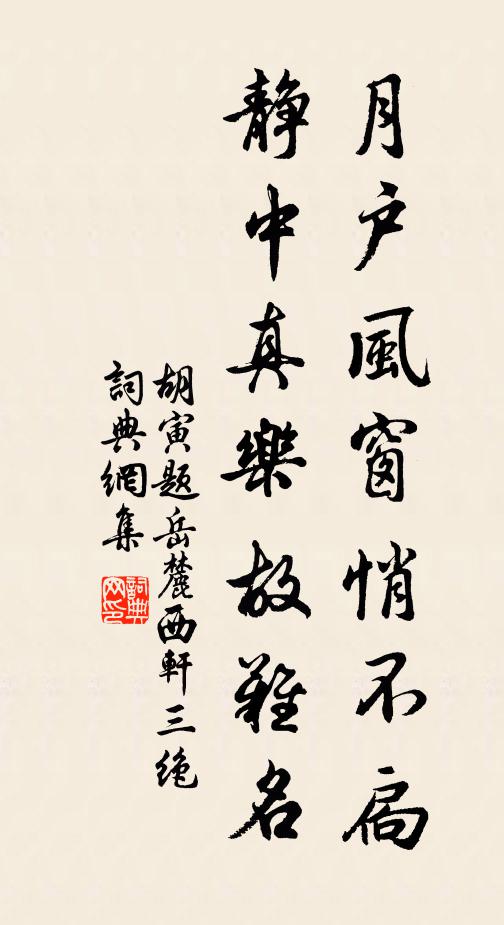 月戶風窗悄不扃
靜中真樂故難名
胡寅題岳麓西軒三絶
詞典網集
詞典網印